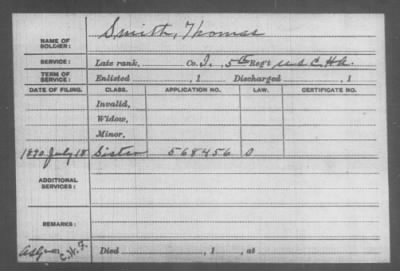 NAME OF SOLDIER: Smith, Thomas
SERVICE: Late rank, Co. I, 5th Reg't U.S.C.H.A.
TERM OF SERVICE: Enlisted , 1 Discharged , 1
DATE OF FILING. CLASS. APPLICATION NO. LAW. CERTIFICATE NO.
Invalid,
Widow,
Minor,
1890 July 18 Sister 568456 O
ADDITIONAL SERVICES:
REMARKS:
C.W.F. Died , 1 , at